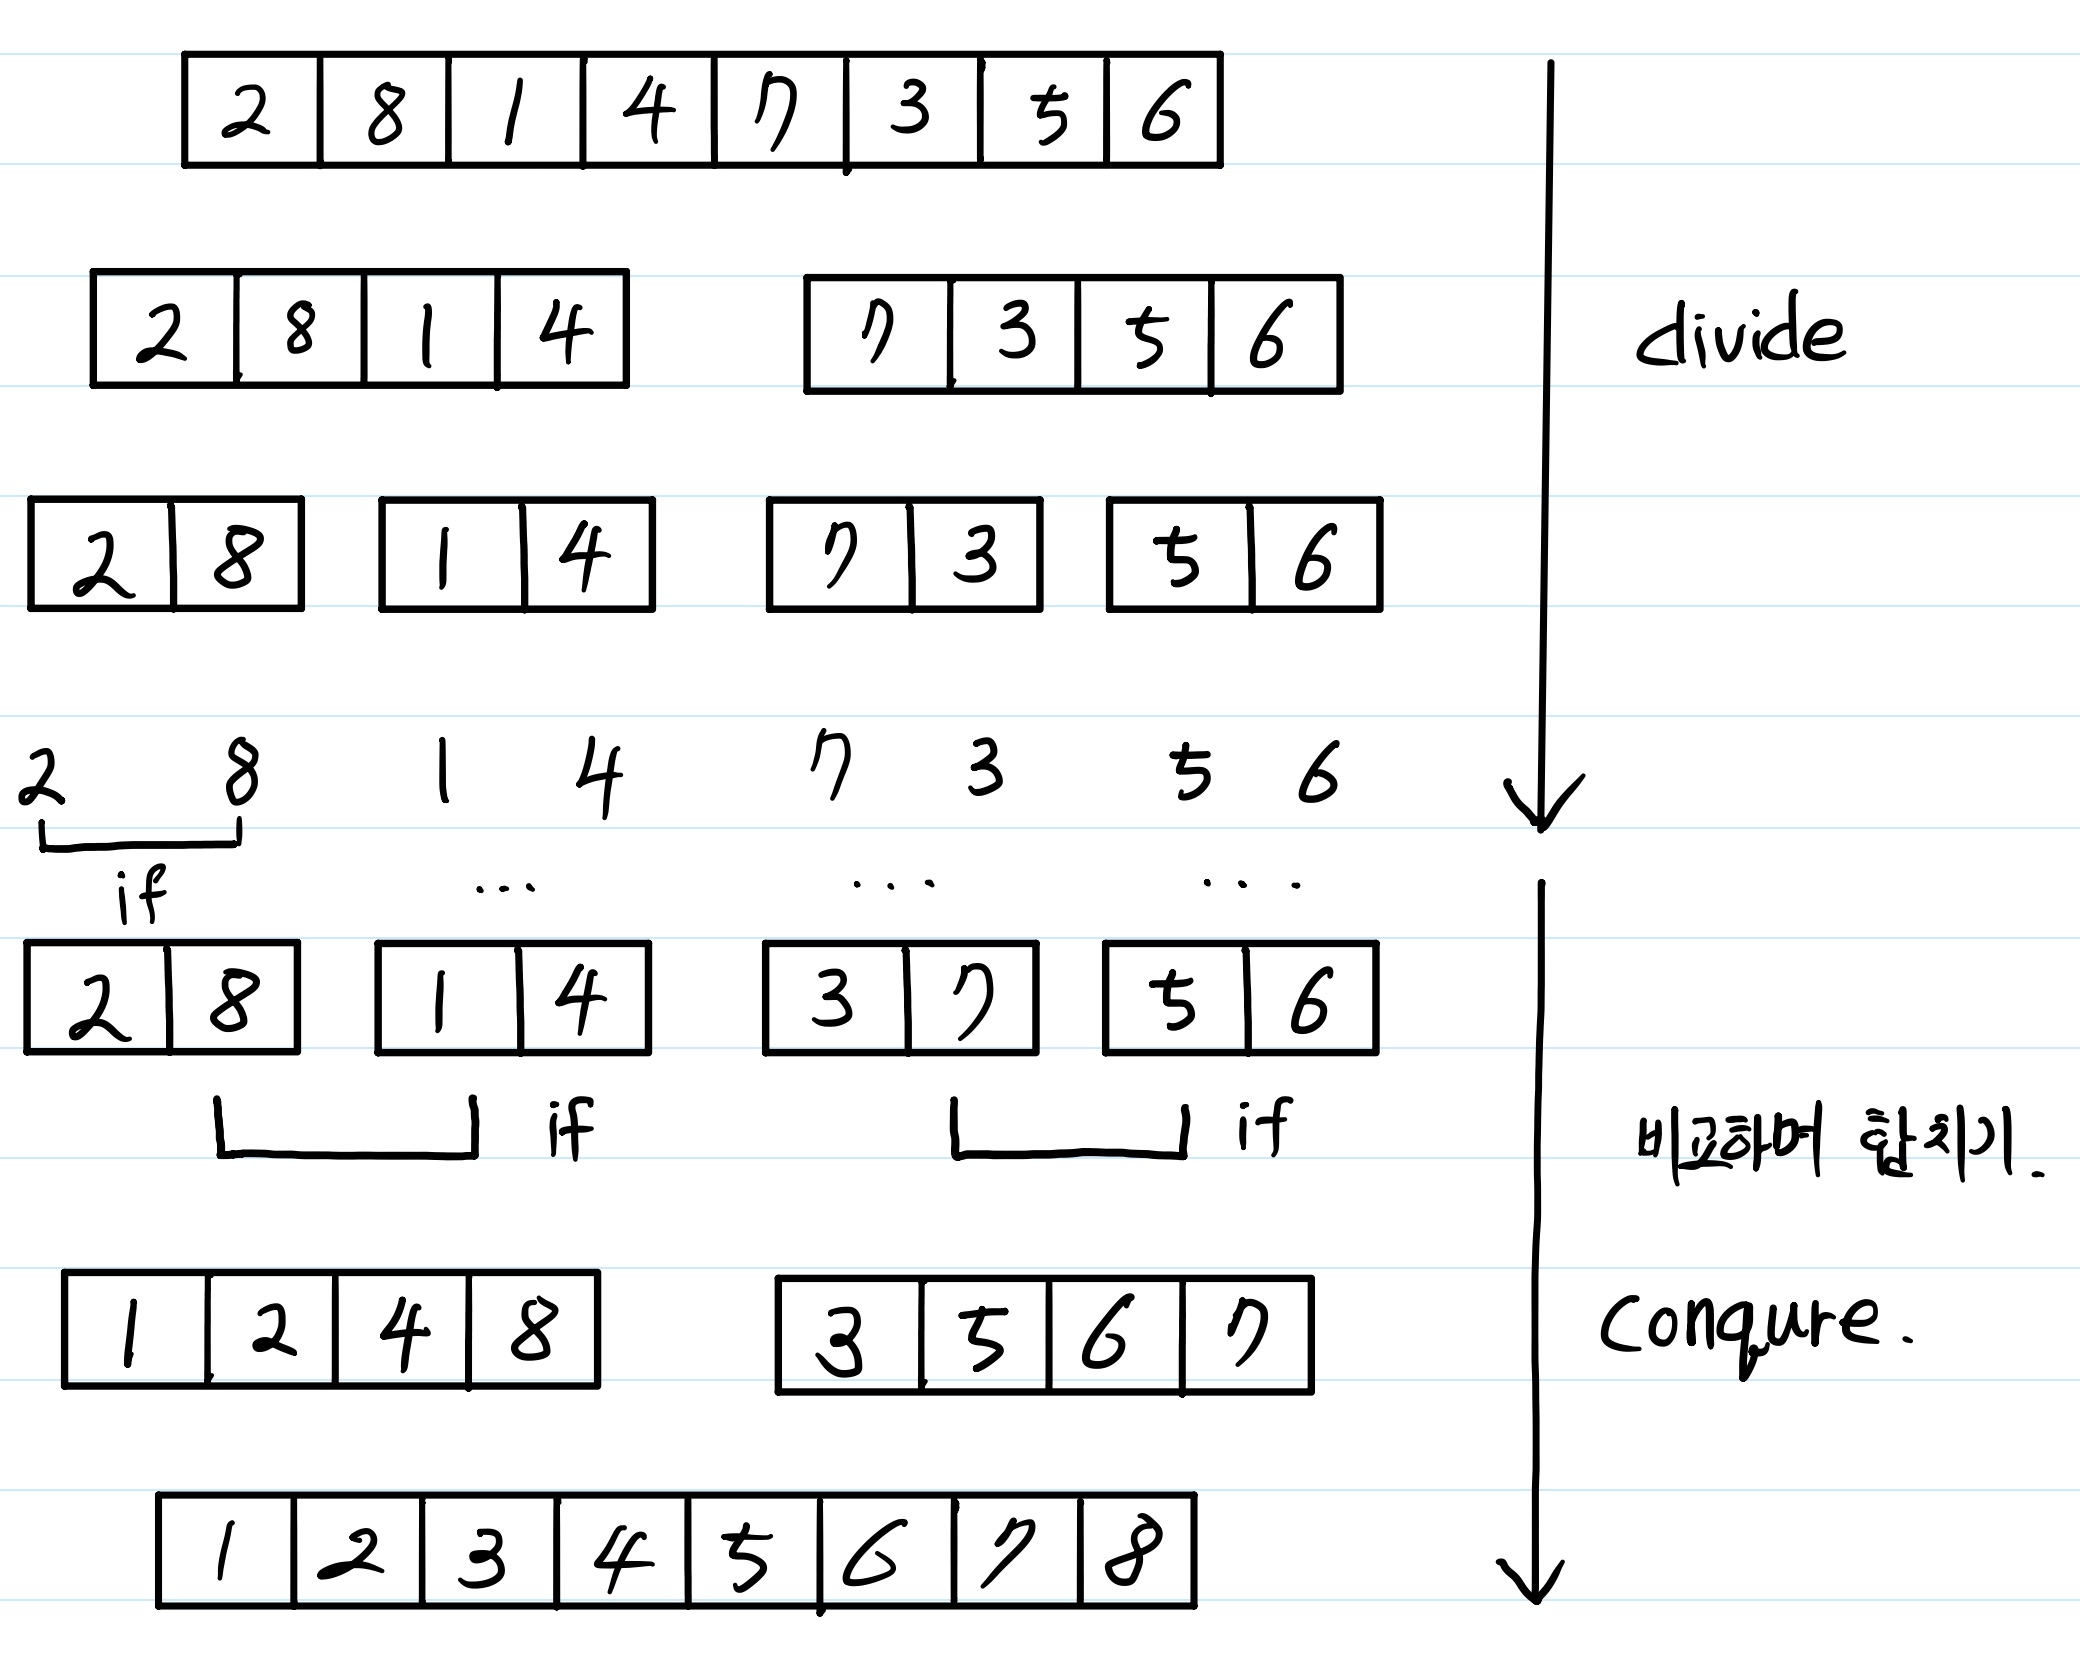 2 8 1 4 7 3 5 6
2 8 1 4 7 3 5 6
divide
2 8 1 4 7 3 5 6
2 8 1 4 7 3 5 6
if ... ... ...
2 8 1 4 3 7 5 6
if if
비교하며 합치기.
1 2 4 8 3 5 6 7
Conqure.
1 2 3 4 5 6 7 8